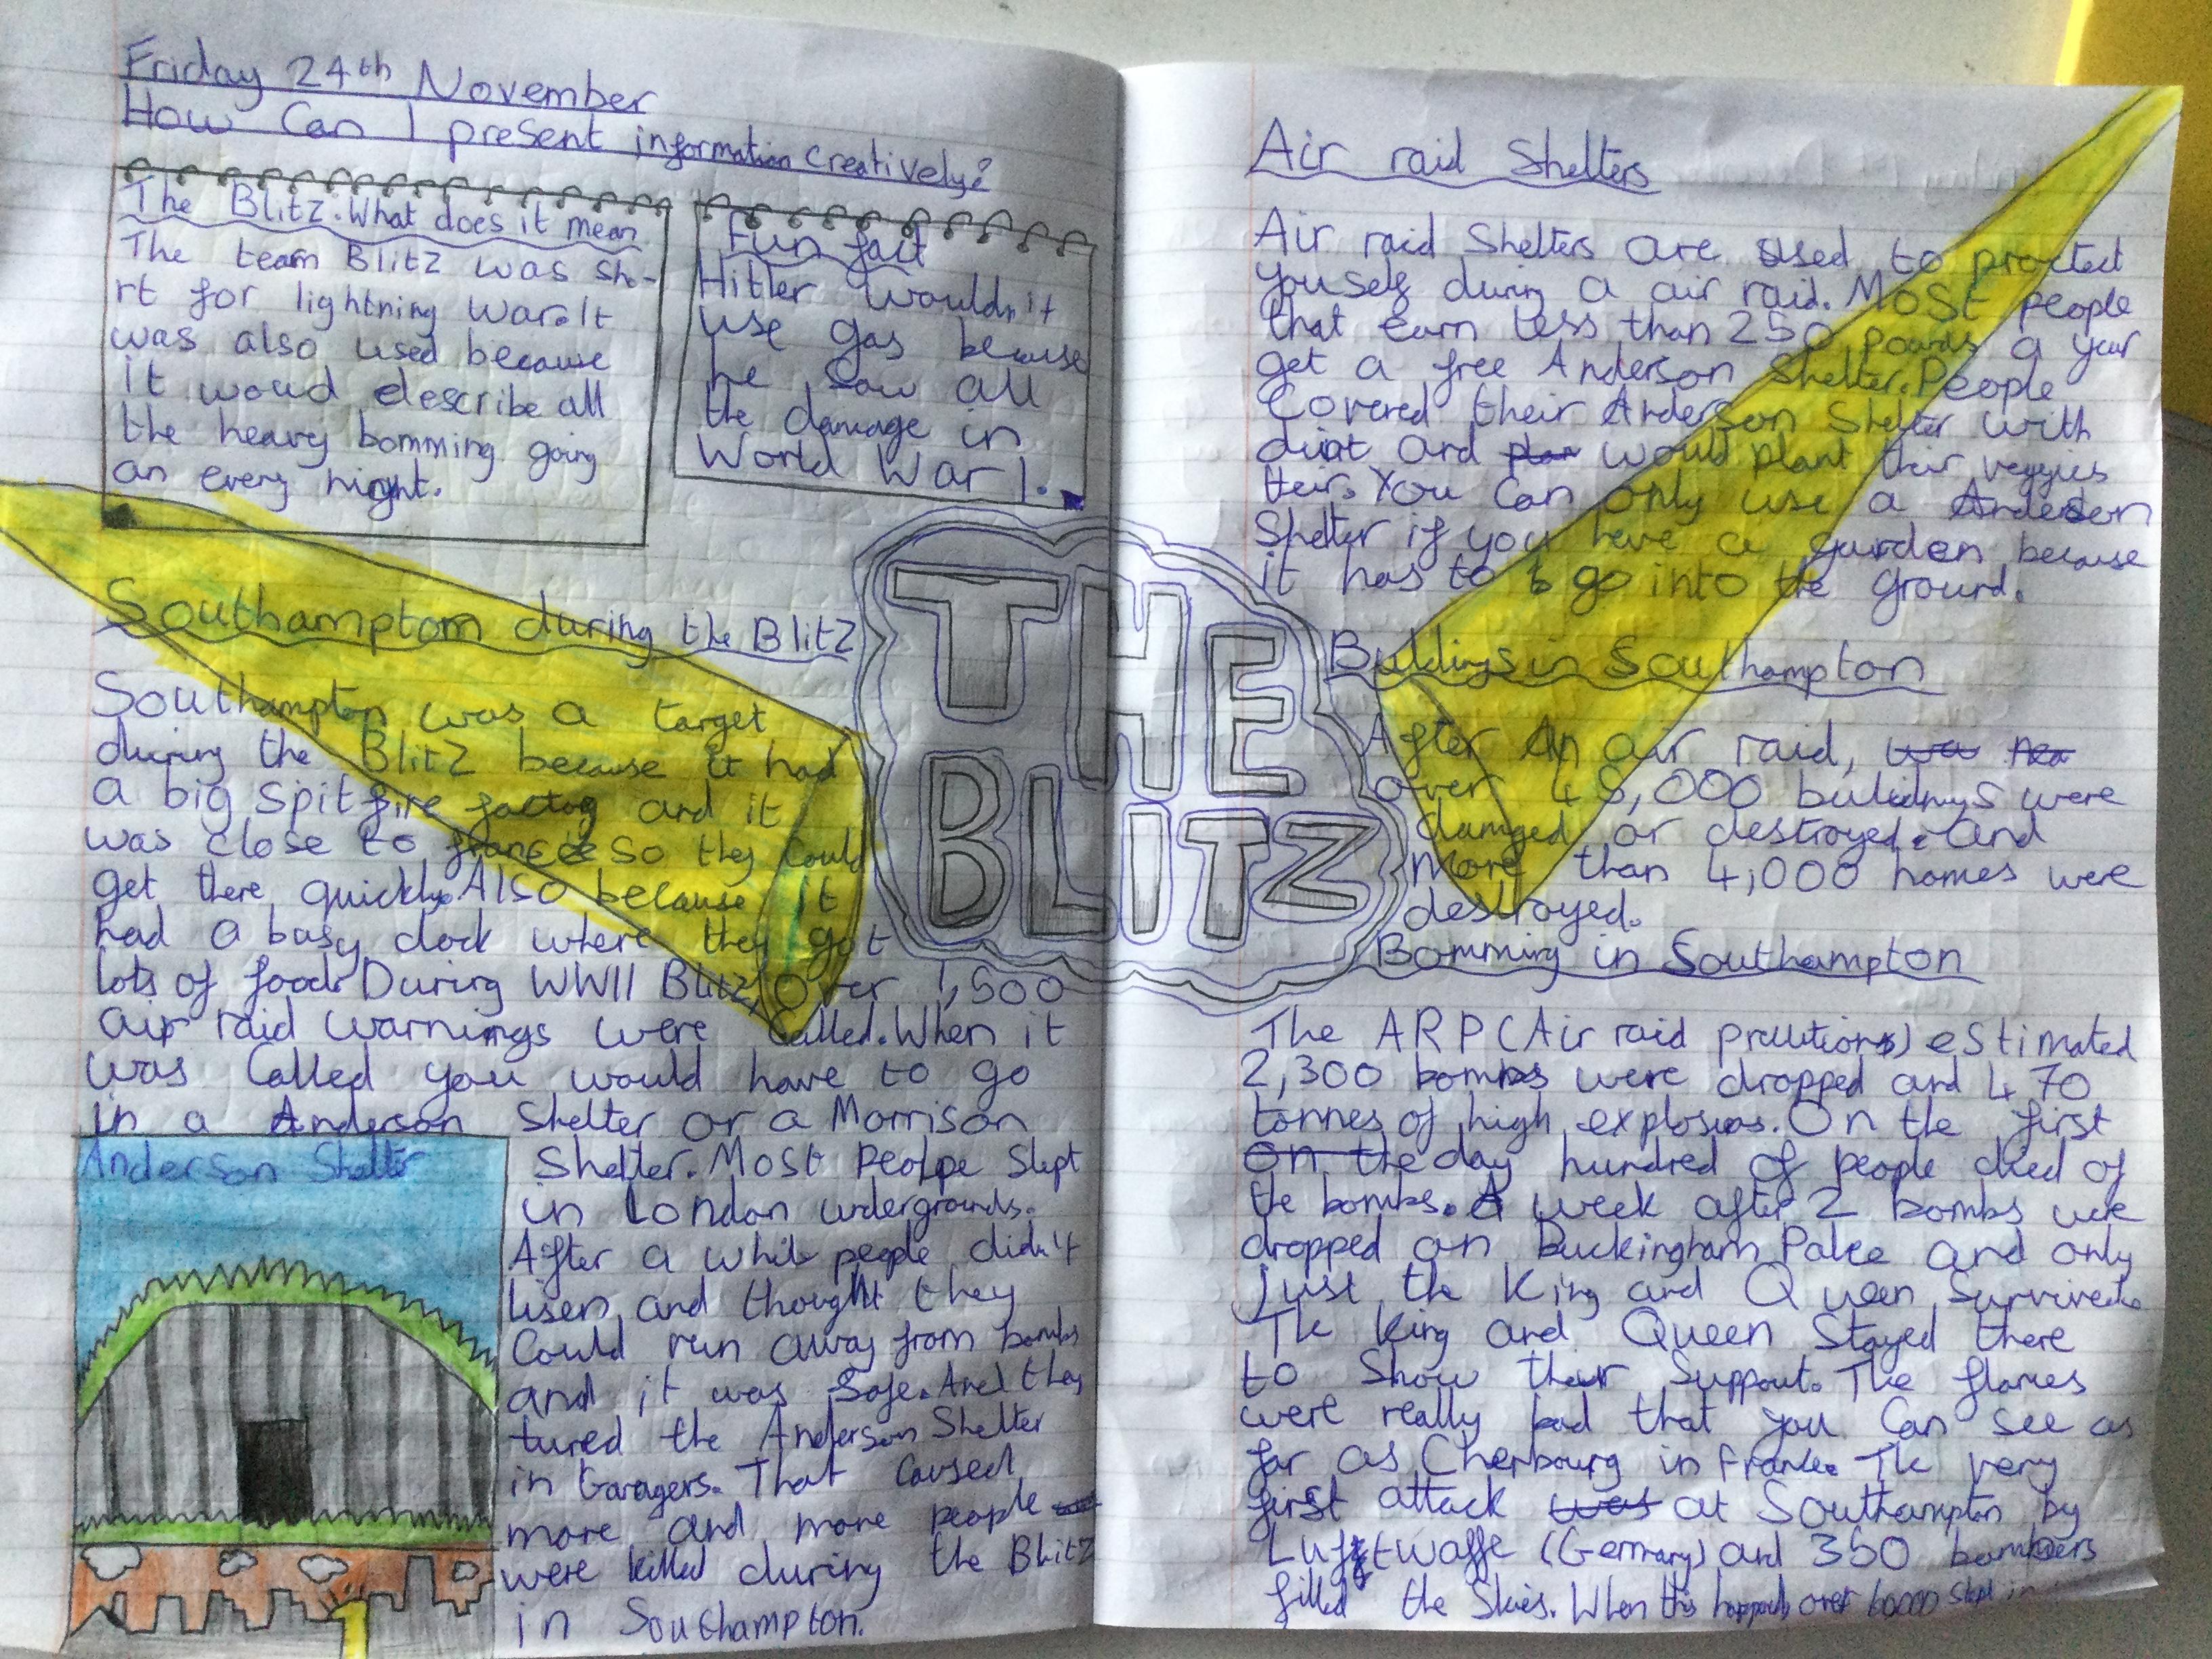 Friday 24th November
How Can I present information creatively?
The Blitz. What does it mean
The team Blitz was sho-
rt for lightning War. It
was also used because
it woud describe all
the heavy bomming going
on every night.
Fun fact
Hitler wouldn't
use gas because
he saw all
the damage in
World War 1.
Southampton during the Blitz
Southampton was a target
during the Blitz because it had
a big spitfire factog and it
was close to france so they could
get there quickly. Also because it
had a busy dock where they got
lots of food. During WWII Blitz, Over 1,500
air raid warnings were called. When it
was called you would have to go
in a Anderson Shelter or a Morrison
Shelter. Most Peolpe slept
in London undergrounds.
After a while people didn't
lisen and thought they
could run away from bombs
and it was safe. And they
tured the Anderson Shelter
in Garagers. That caused
more and more people
were killed during the Blitz
in Southampton.
Anderson Shelter
THE
BLITZ
Air raid Shelters
Air raid Shelters are used to protect
youself during a air raid. Most people
that earn less than 250 pounds a year
get a free Anderson Shelter. People
covered their Anderson Shelter with
dirt and would plant their veggies
their. You can only use a Anderson
Shelter if you have a garden because
it has to go into the ground.
Buildings in Southampton
After an air raid,
over 45,000 buildings were
damged or destroyed. And
more than 4,000 homes were
destroyed.
Bomming in Southampton
The ARP (Air raid ) estimated
2,300 bombs were dropped and 470
tonnes of high explosives. On the first
on the day hundred of people died of
the bombs. A week after 2 bombs were
dropped on Buckingham Palce and only
just the King and Queen survived.
The King and Queen stayed there
to show their support. The flames
were really bad that you can see as
far as Cherbourg in France. The very
first attack was at Southampton by
Luftwaffe (Germany) and 350 bombers
filled the skies. When this over 60000 slept in